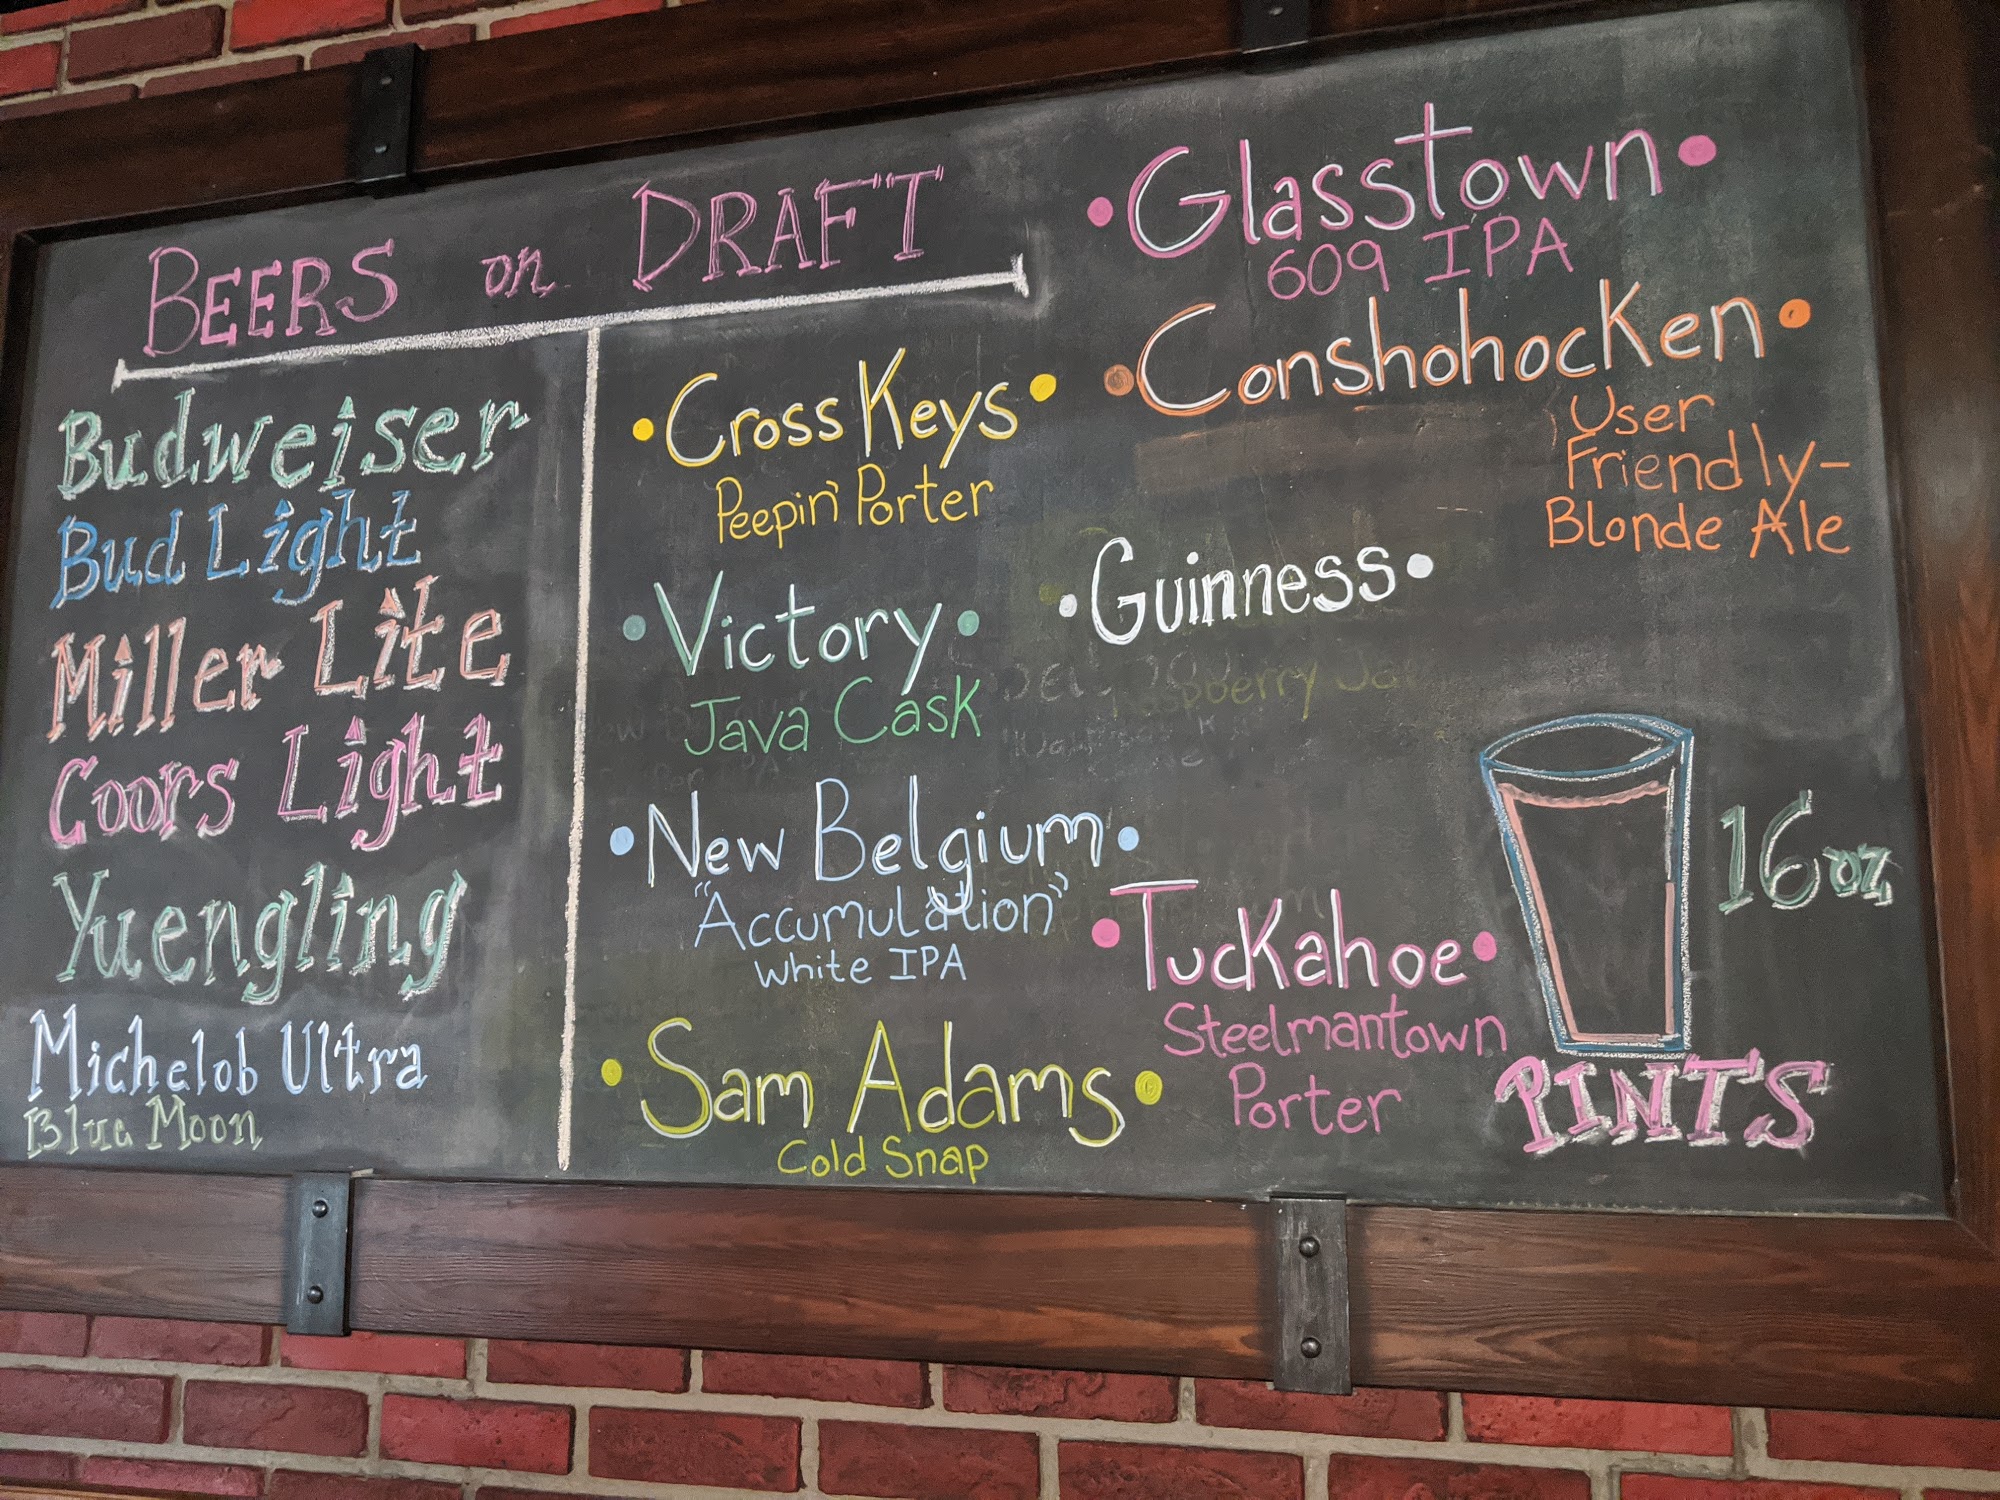 BEERS on DRAFT
Budweiser
Bud Light
Miller Lite
Coors Light
Yuengling
Michelob Ultra
Blue Moon
Cross Keys
Peepin' Porter
Victory
Java Cask
New Belgium
"Accumulation"
White IPA
Sam Adams
Cold Snap
Glasstown
609 IPA
Conshohocken
User
Friendly-
Blonde Ale
Guinness
Tuckahoe
Steelmantown
Porter
16oz
PINTS